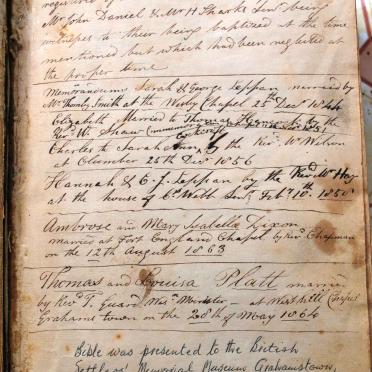 Mr John Daniel & Mr H Sparks Senr being
witnesses to their being baptized at the time
mentioned but which had been neglected at
the proper time
Memorandums Sarah & George Tappan married by
Mr Thornley Smith at the Wesley Chapel 25th Decr 1844
Elizabeth Married to Thomas by the
Revd W. Shaw
Charles to Sarah Ann by the Revd Mr Wilson
at Clumber 25th Decr 1856
Hannah & C. J. Tappan by the Revd Wm Hay
at the house of C. Webb Senr Feby 10th
Ambrose and Mary Isabella Dixon
married at Fort England Chapel by Revd Chapman
on the 12th August 1863
Thomas and Louisa Platt married
by Revd T. Guard Wesn Minister - at West hill Chapel
Grahams town on the 28th of May 1864
Bible was presented to the British
Settlers' Memorial Museum Grahamstown,